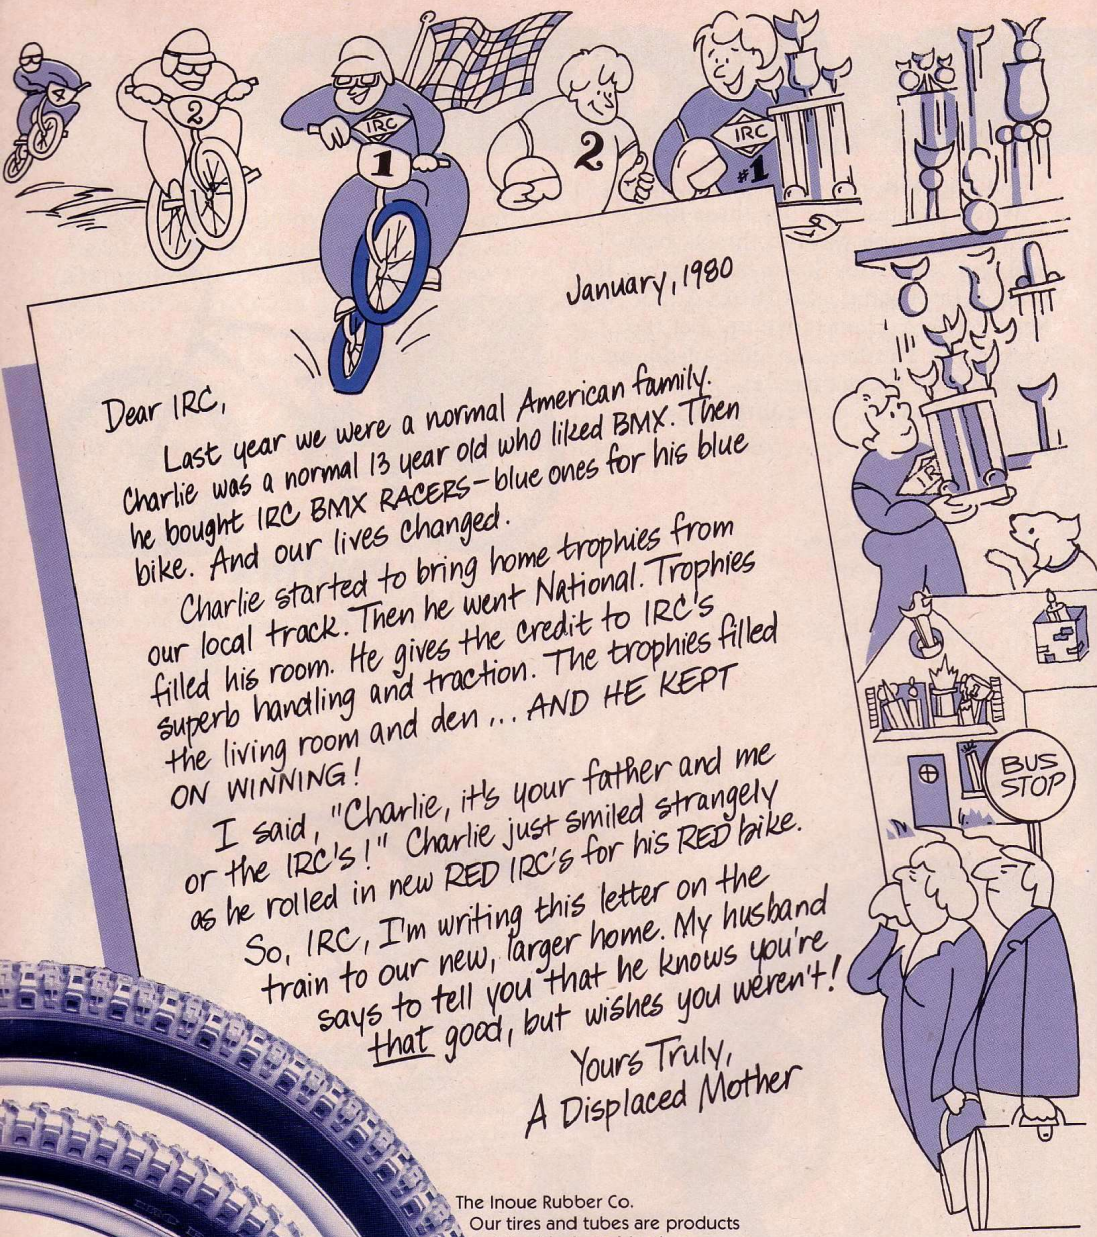 4
2
IRC
1
2
IRC
#1
January, 1980
Dear IRC,
Last year we were a normal American family.
Charlie was a normal 13 year old who liked BMX. Then
he bought IRC BMX RACERS-blue ones for his blue
bike. And our lives changed.
Charlie started to bring home trophies from
our local track. Then he went National. Trophies
filled his room. He gives the credit to IRC's
superb handling and traction. The trophies filled
the living room and den ... AND HE KEPT
ON WINNING!
I said, "Charlie, it's your father and me
or the IRC's!" Charlie just smiled strangely
as he rolled in new RED IRC's for his RED bike.
So, IRC, I'm writing this letter on the
train to our new, larger home. My husband
says to tell you that he knows you're
that good, but wishes you weren't!
Yours Truly,
A Displaced Mother
IRC
BUS
STOP
The Inoue Rubber Co.
Our tires and tubes are products